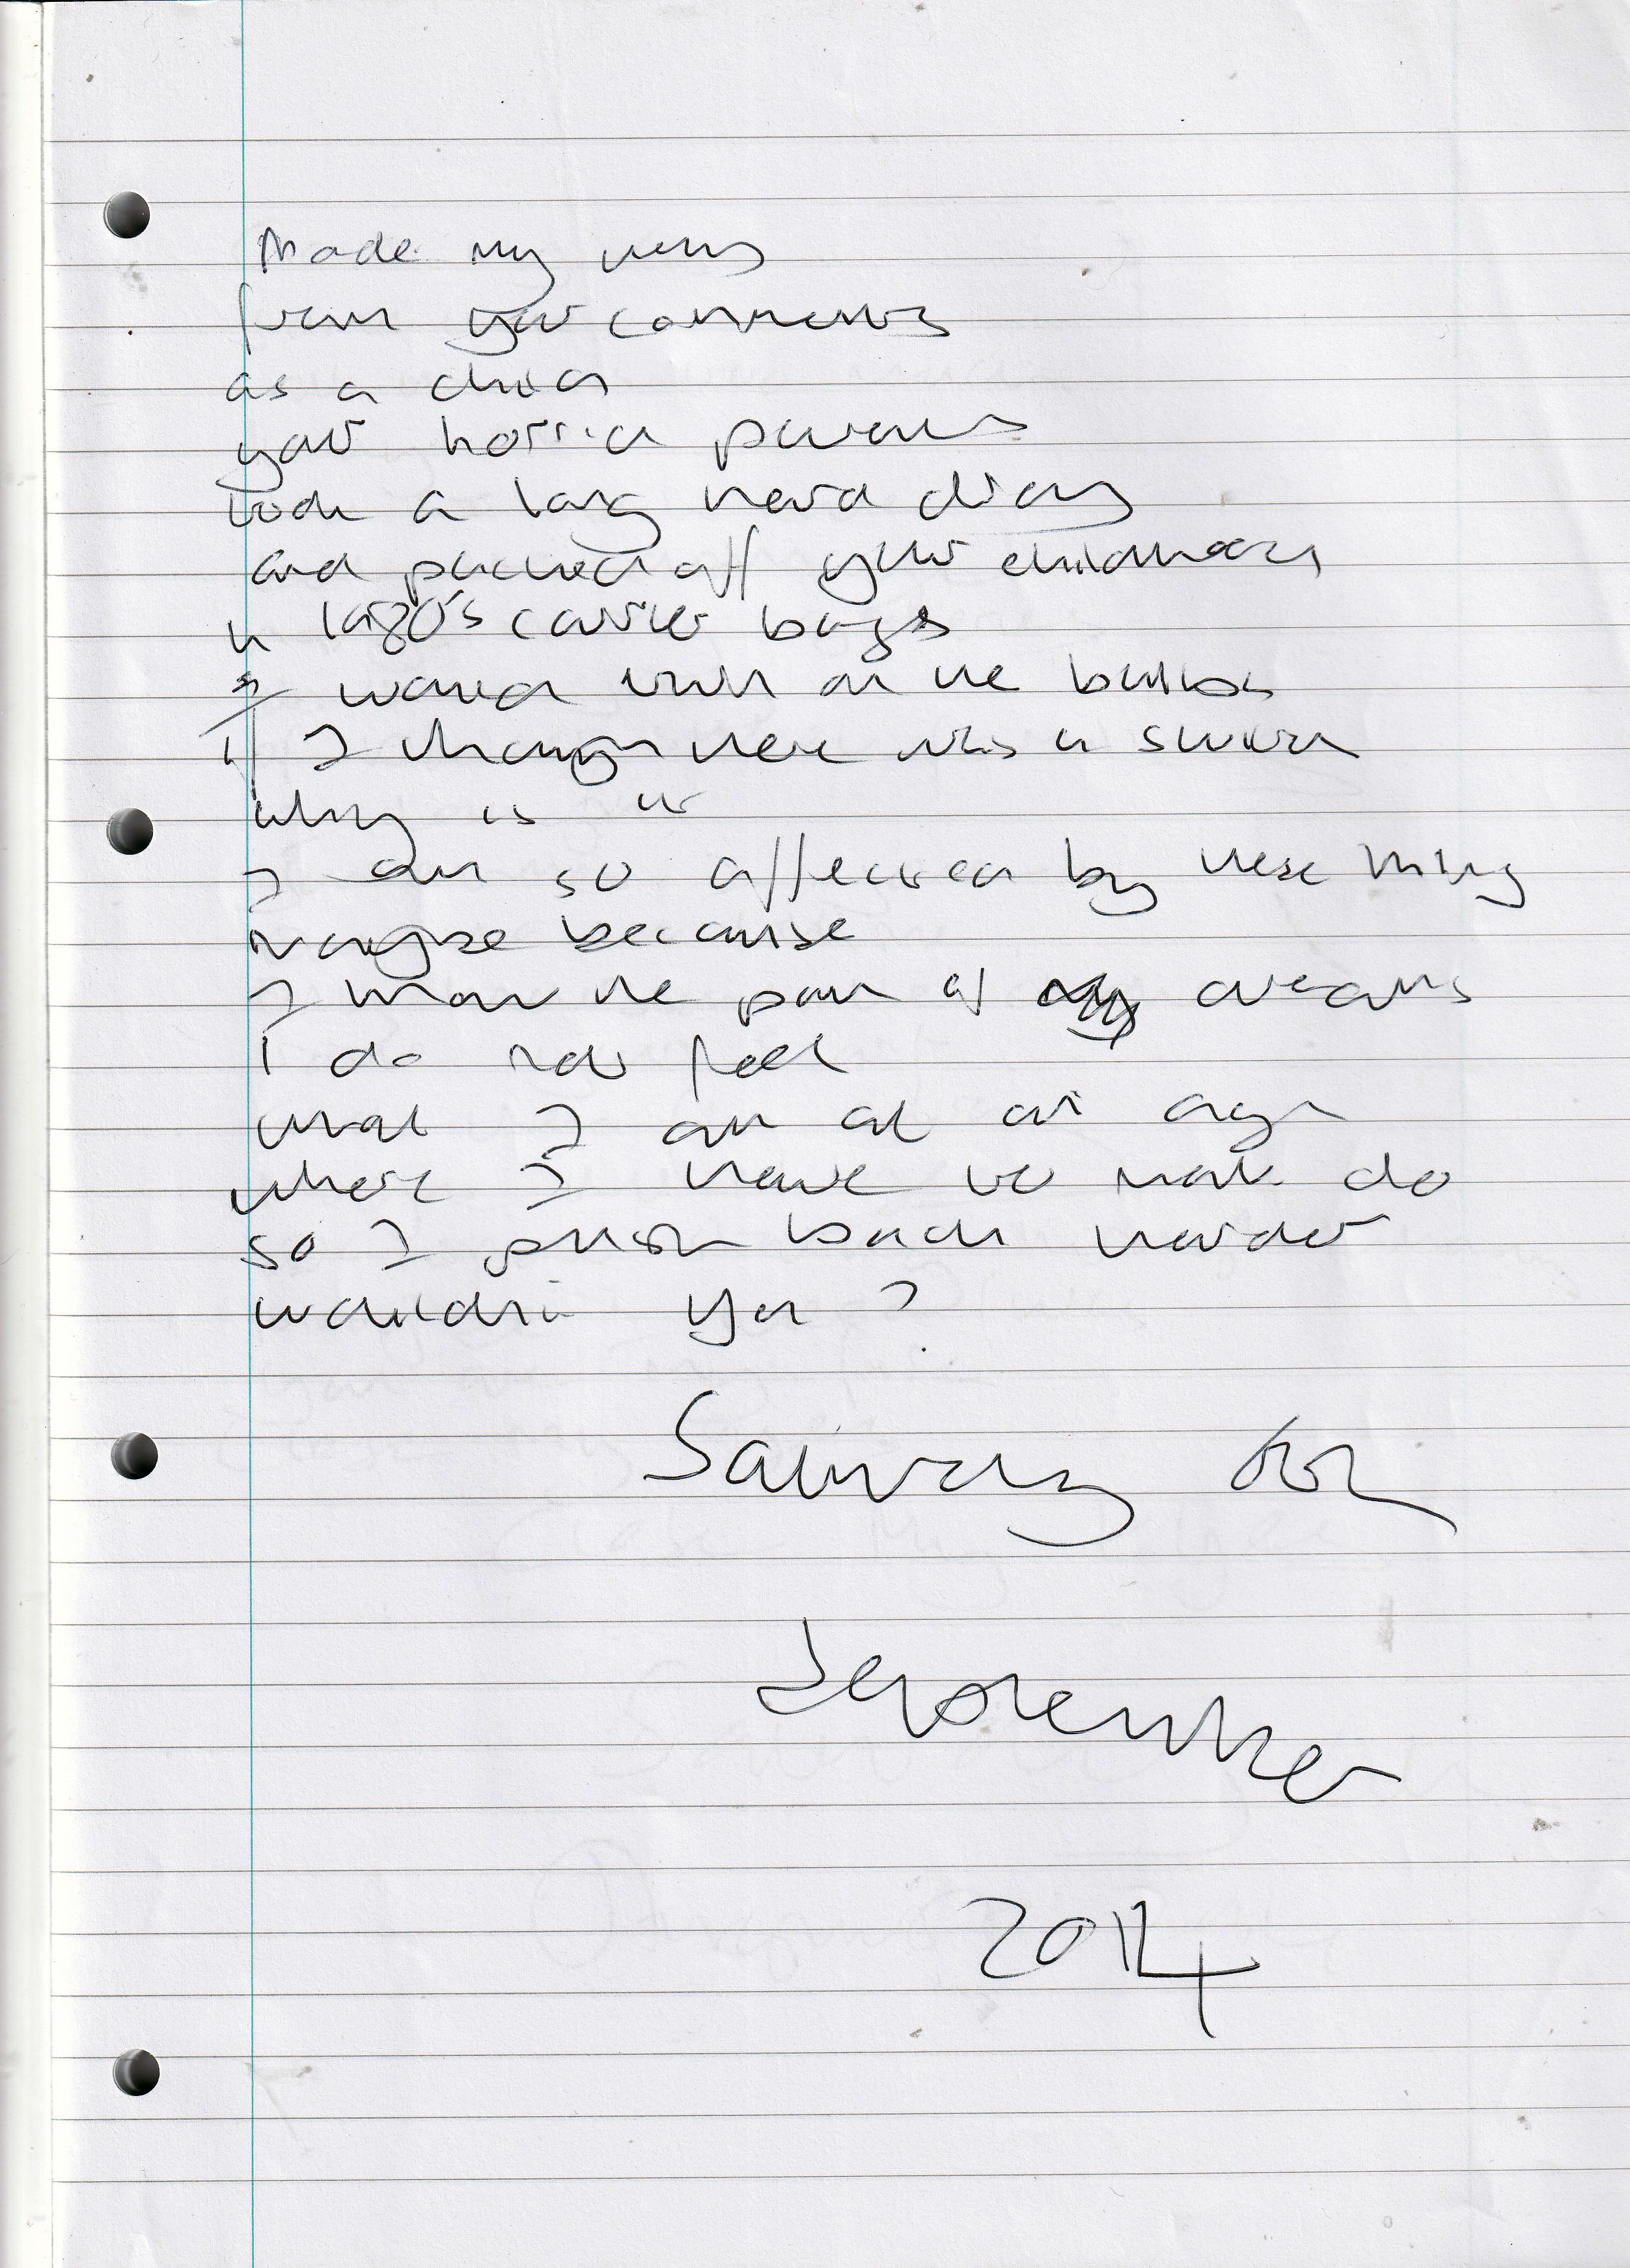 Made my way
from your comments
as a child
your horrid parents
took a long hard diary
and packed off your childhood
in 1980's carrier bags
I would walk on the
If I thought there was a
why is it
I am so affected by these things
maybe because
I than the part of dreams
I do not feel
that I am at an age
where I have to make do
so I push back harder
wouldn't you?
Saturday 6th
September
2014